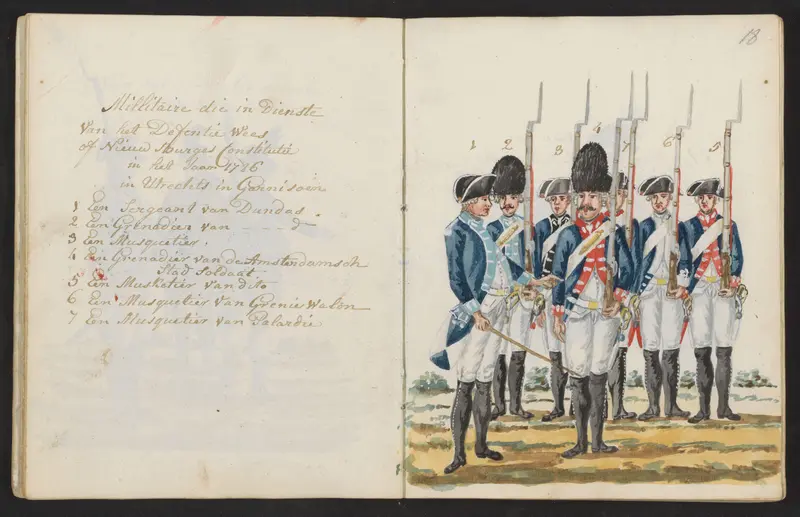 Millitaire die in Dienste
Van het Defentie Wees
of Nieuw Burger Constitutie
in het Jaar 1786
in Utrecht in Garnisoen
1 Een Sergeant van Dundas
2 Een Grenadier van d
3 Een Musquetier
4 Een Grenadier van de Amsterdamsch
Stad Soldaat
5 Een Musketier van dito
6 Een Musquetier van Grenie Walon
7 Een Musquetier van Palardie
18
1
2
3
4
7
6
5